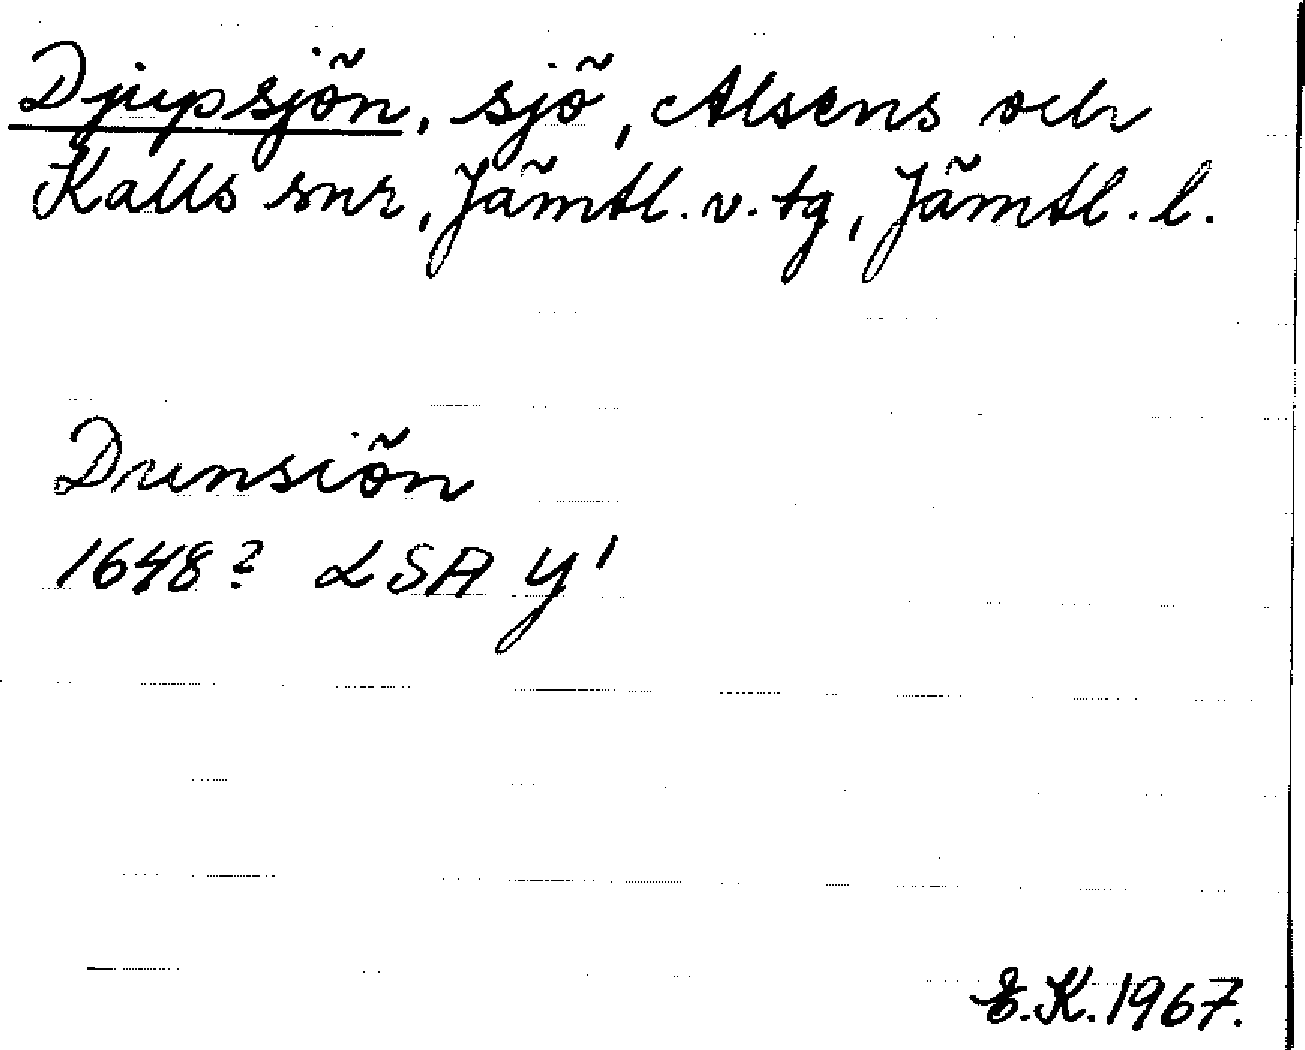 Djupsjön, sjö, Alsens och
Kalls snr, Jämtl. v. tg, Jämtl. l.
Dunsiön
1648? LSA Y¹
E.K. 1967.